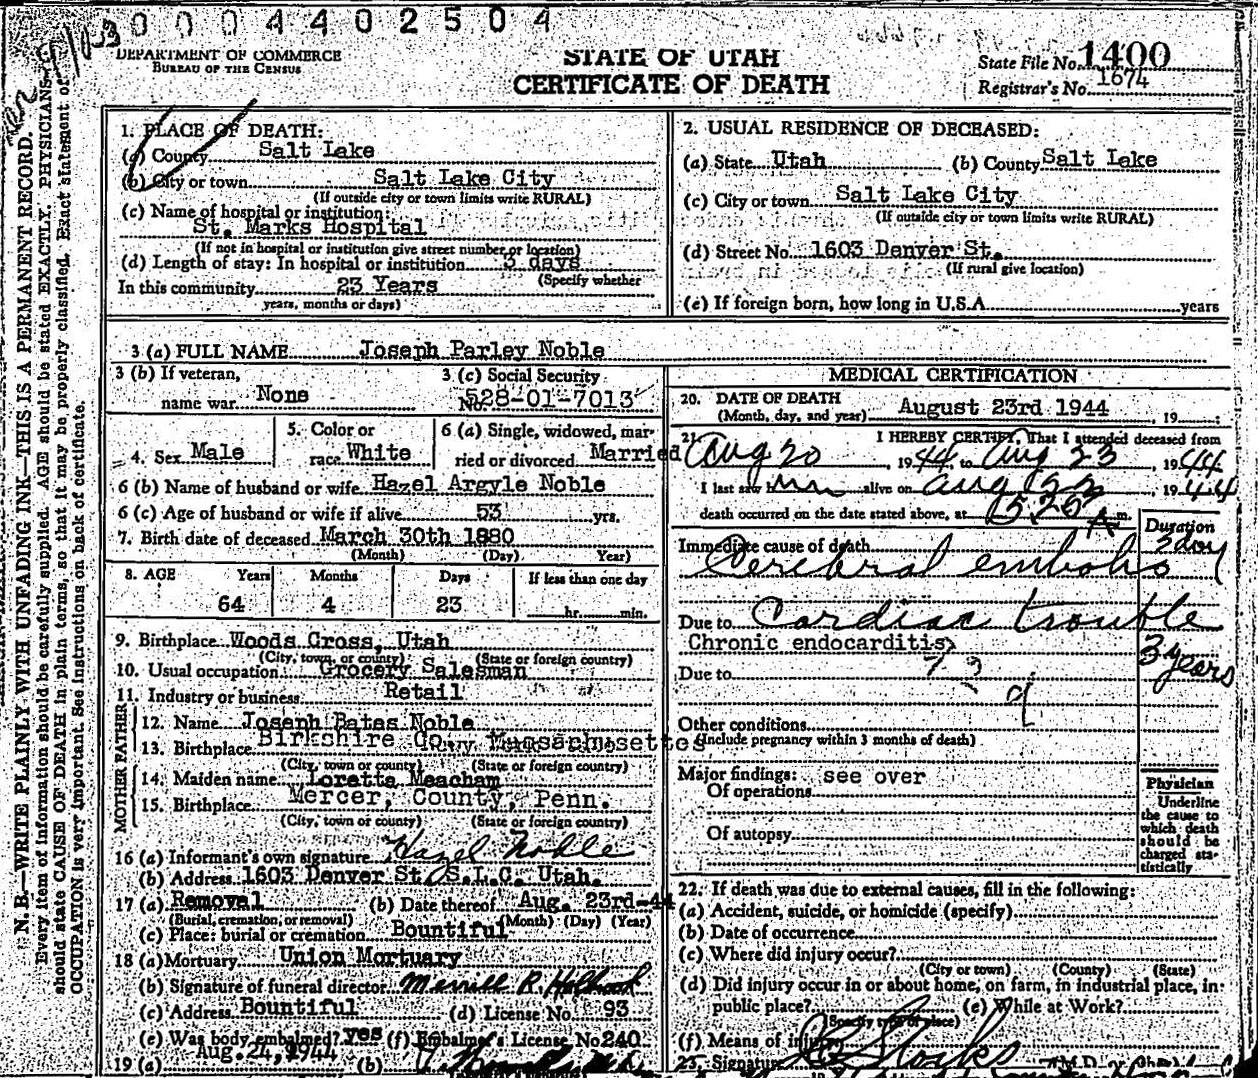 0004402504
DEPARTMENT OF COMMERCE
BUREAU OF THE CENSUS
STATE OF UTAH
CERTIFICATE OF DEATH
State File No. 1400
Registrar's No. 1674
N. B.—WRITE PLAINLY WITH UNFADING INK—THIS IS A PERMANENT RECORD.
Every item of information should be carefully supplied. AGE should be stated EXACTLY. PHYSICIANS
should state CAUSE OF DEATH in plain terms, so that it may be properly classified. Exact statement of
OCCUPATION is very important. See instructions on back of certificate.
1. PLACE OF DEATH:
(a) County Salt Lake
(b) City or town Salt Lake City
(If outside city or town limits write RURAL)
(c) Name of hospital or institution:
St. Marks Hospital
(If not in hospital or institution give street number or location)
(d) Length of stay: In hospital or institution 3 days
(Specify whether
In this community 23 Years
years, months or days)
2. USUAL RESIDENCE OF DECEASED:
(a) State Utah (b) County Salt Lake
(c) City or town Salt Lake City
(If outside city or town limits write RURAL)
(d) Street No. 1603 Denver St.
(If rural give location)
(e) If foreign born, how long in U.S.A. years
3 (a) FULL NAME Joseph Parley Noble
3 (b) If veteran, name war None
3 (c) Social Security No. 528-01-7013
4. Sex Male
5. Color or race White
6 (a) Single, widowed, married or divorced Married
6 (b) Name of husband or wife Hazel Argyle Noble
6 (c) Age of husband or wife if alive 53 yrs.
7. Birth date of deceased March 30th 1880
(Month) (Day) Year)
8. AGE Years Months Days If less than one day
64 4 23 hr. min.
9. Birthplace Woods Cross, Utah
(City, town, or county) (State or foreign country)
10. Usual occupation Grocery Salesman
11. Industry or business Retail
FATHER
12. Name Joseph Bates Noble
13. Birthplace Birkshire Co., Massachusettes
(City, town or county) (State or foreign country)
MOTHER
14. Maiden name Loretta Meacham
15. Birthplace Mercer, County, Penn.
(City, town or county) (State or foreign country)
16 (a) Informant's own signature Hazel Noble
(b) Address 1603 Denver St. S.L.C. Utah.
17 (a) Removal (b) Date thereof Aug. 23rd-44
(Burial, cremation, or removal) (Month) (Day) (Year)
(c) Place: burial or cremation Bountiful
18 (a) Mortuary Union Mortuary
(b) Signature of funeral director Merrill R. Holbrook
(c) Address Bountiful (d) License No. 93
(e) Was body embalmed? yes (f) Embalmer's License No 240
19 (a) Aug. 24, 1944 (b)
MEDICAL CERTIFICATION
20. DATE OF DEATH
(Month, day, and year) August 23rd 1944, 19
21. I HEREBY CERTIFY, That I attended deceased from
Aug 20, 1944, to Aug 23, 1944
I last saw him alive on Aug 22, 1944
death occurred on the date stated above, at 5.25 A m.
Duration
Immediate cause of death 3 day
Cerebral embolus
Due to Cardiac trouble
Chronic endocarditis 3 years
Due to
Other conditions
(Include pregnancy within 3 months of death)
Major findings: see over
Of operations
Of autopsy
Physician
Underline
the cause to
which death
should be
charged sta-
tistically
22. If death was due to external causes, fill in the following:
(a) Accident, suicide, or homicide (specify)
(b) Date of occurrence
(c) Where did injury occur?
(City or town) (County) (State)
(d) Did injury occur in or about home, on farm, in industrial place, in
public place? (e) While at Work?
(Specify type of place)
(f) Means of injury
23. Signature M.D.